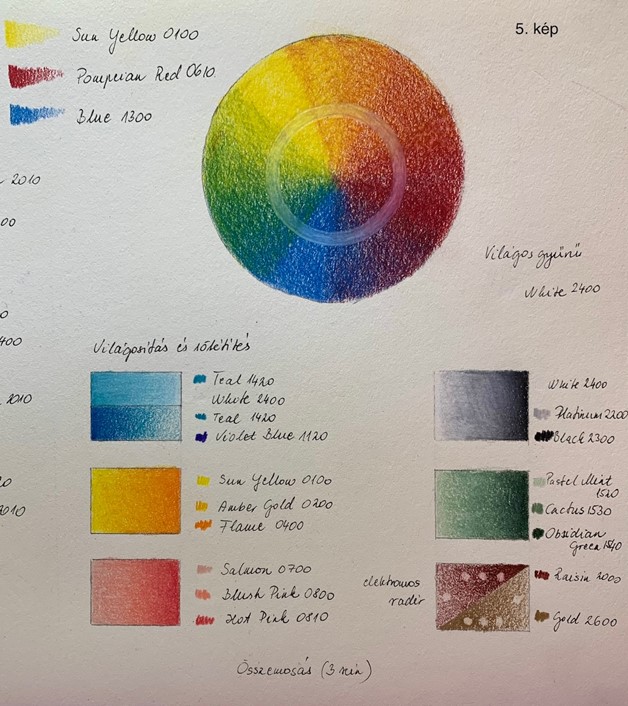 5. kép
Sun Yellow 0100
Pompeian Red 0610
Blue 1300
2010
00
Világos gyűrű
White 2400
0
400
2010
0
2010
Világosítás és sötétítés
Teal 1420
White 2400
Teal 1420
Violet Blue 1120
White 2400
Platinum 2200
Black 2300
Sun Yellow 0100
Amber Gold 0200
Flame 0400
Pastel Mint
1520
Cactus 1530
Obsidian
Green 1540
Salmon 0700
Blush Pink 0800
Hot Pink 0810
elektromos
radír
Raisin 2000
Gold 2600
Összemosás (3 szín)